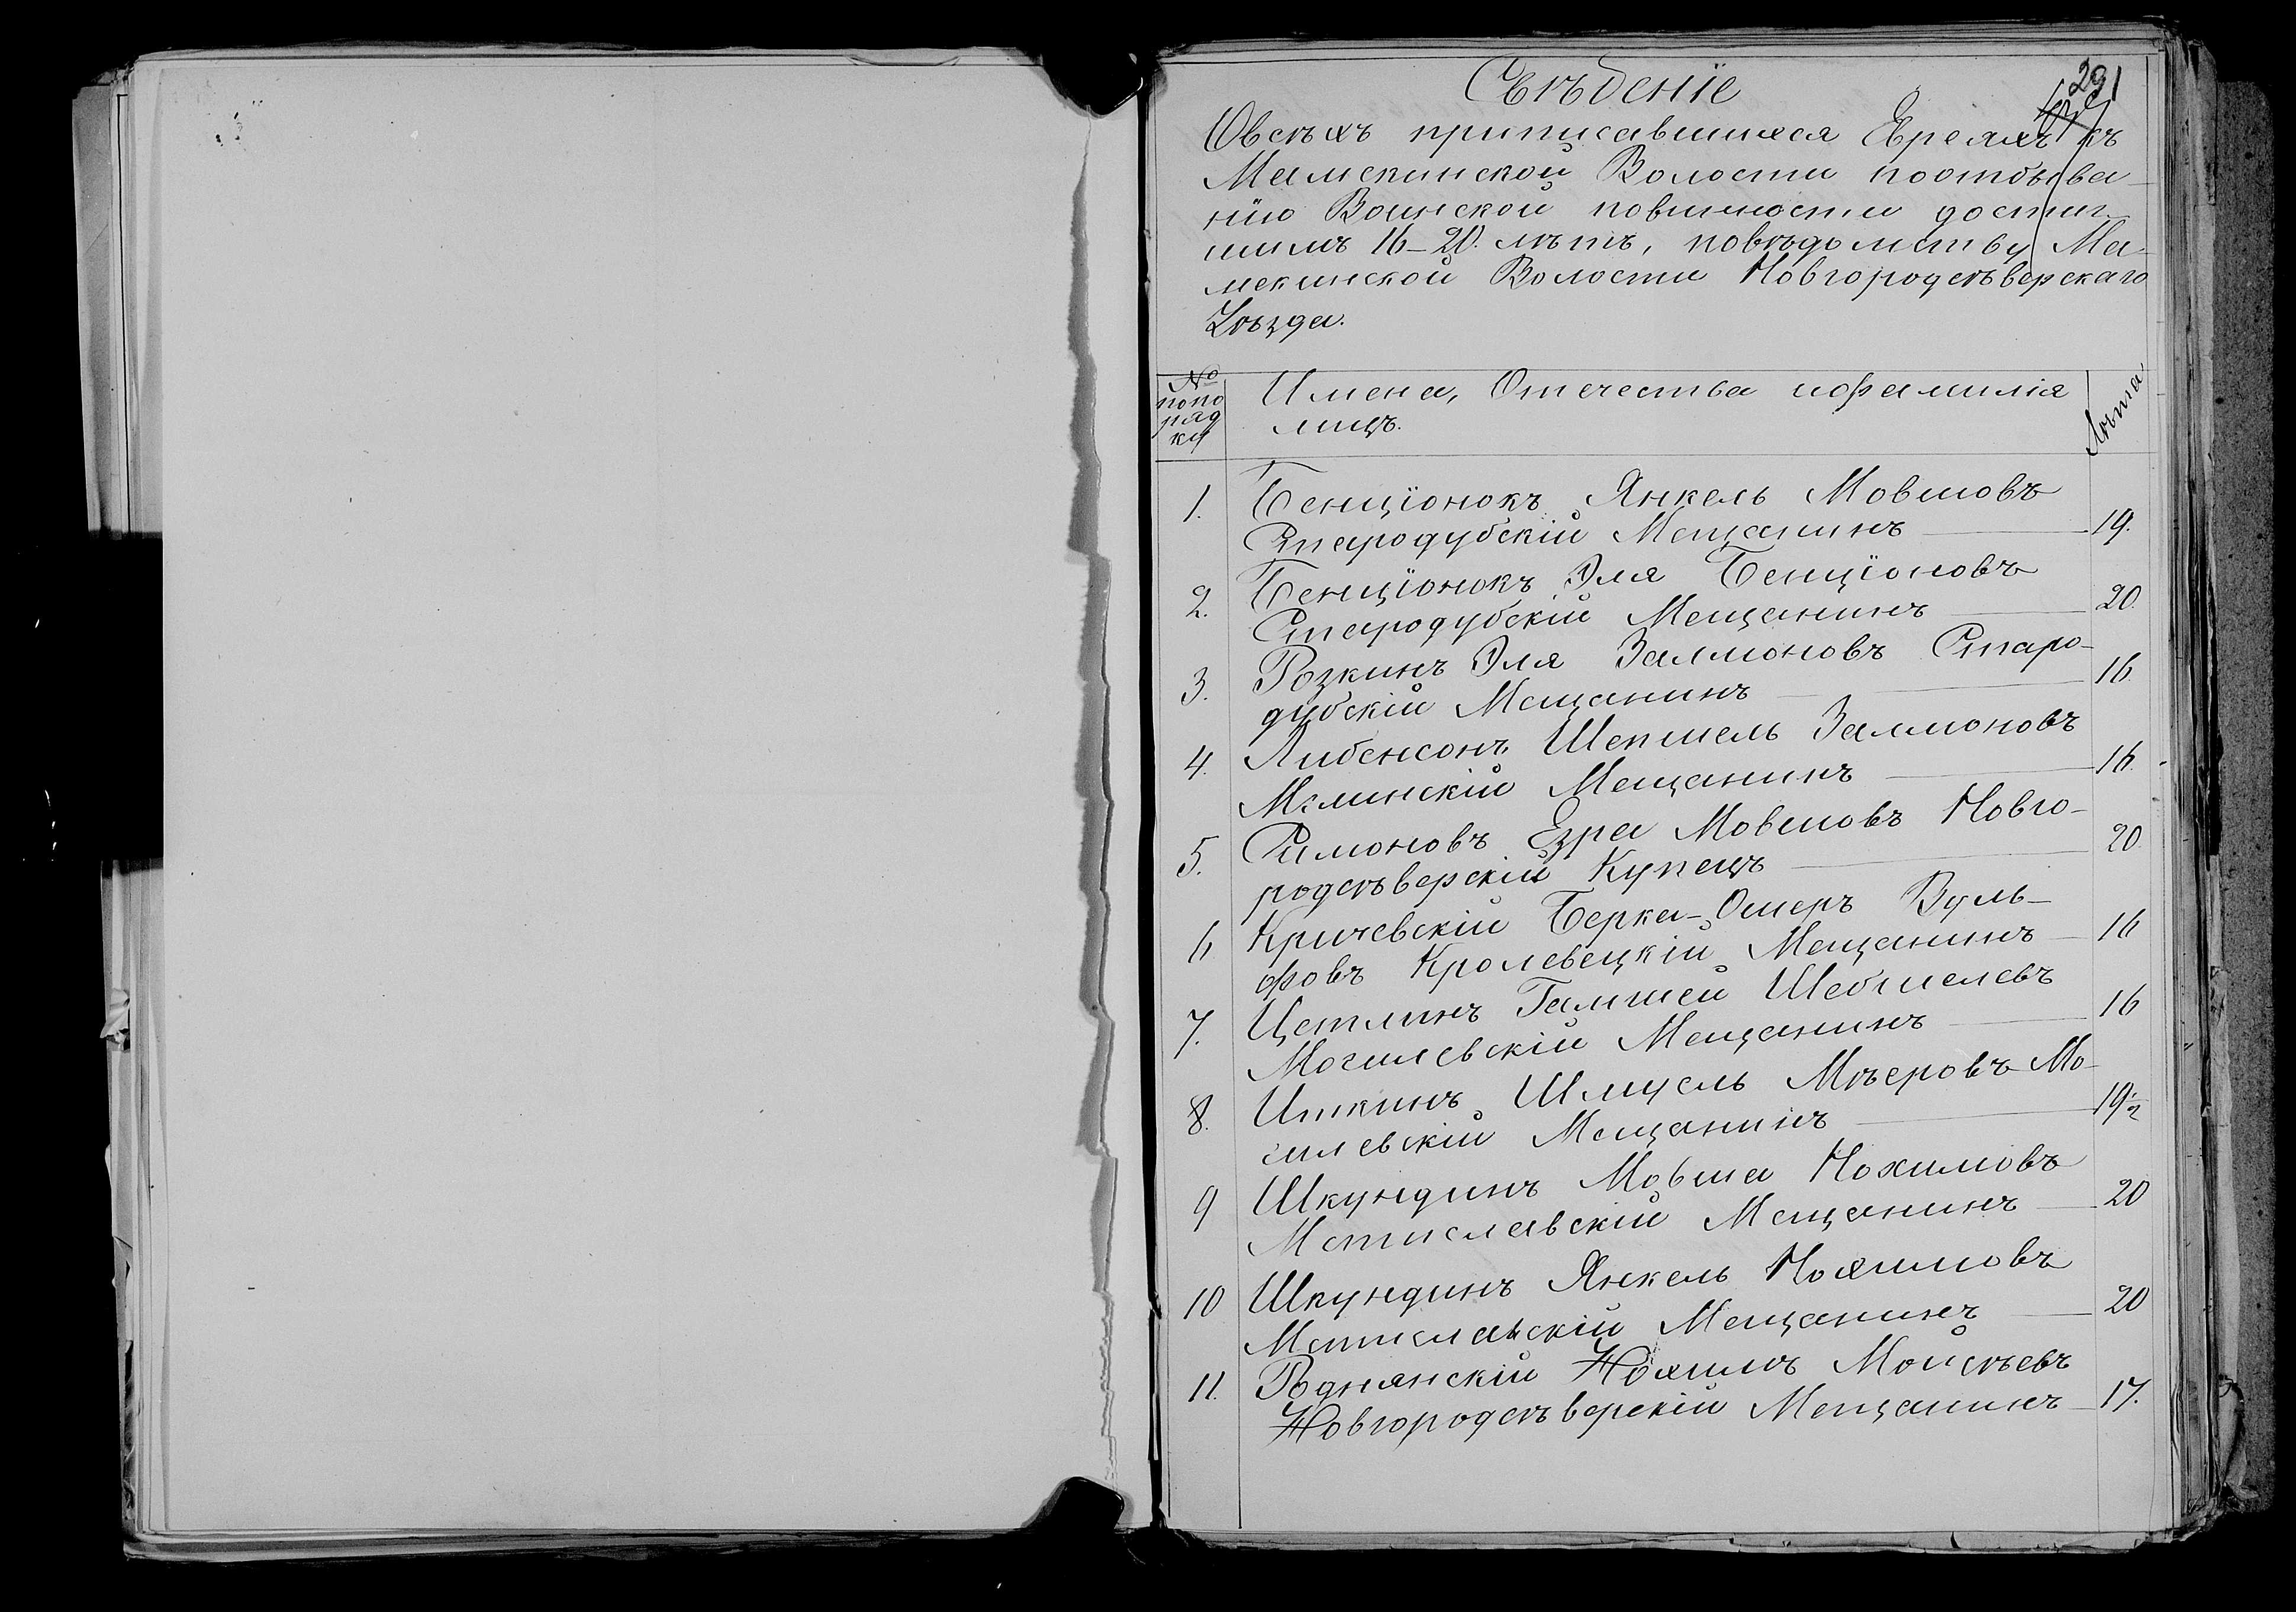 291
Свѣденіе
Овсѣхъ приписавшихся Евреяхъ къ
Мамекинской Волости поотбыва-
нію Воинской повинности достиг-
шимъ 16-20. лѣтъ, повѣдомству Ма-
мекинской Волости Новгородсѣверскаго
Уѣзда.
№ попо рядку
Имена, Отечества ифамиліа
лицъ.
Лѣта
1. Бенціонокъ Янкель Мовшовъ
Стародубскій Мещанинъ 19.
2. Бенціонокъ Эля Бенціоновъ
Стародубскій Мещанинъ 20.
3. Розкинъ Эля Залмоновъ Старо-
дубскій Мещанинъ 16
4. Либенсонъ Шепшель Залмоновъ
Мглинскій Мещанинъ 16.
5. Симоновъ Езра Мовшовъ Новго-
родсѣверскій Купецъ 20.
6 Кричевскій Берка-Ошеръ Вуль-
фовъ Кролевецкій Мещанинъ 16
7. Цетлинъ Гамшей Шебшелевъ
Могилевскій Мещанинъ 16
8. Иткинъ Шмуель Мѣеровъ Мо-
гилевскій Мещанинъ 19½
9 Шкундинъ Мовша Нохимовъ
Мстиславскій Мещанинъ 20
10 Шкундинъ Янкель Нохимовъ
Мстиславскій Мещанинъ 20
11. Роднянскій Нохимъ Моисѣевъ
Новгородсѣверскій Мещанинъ 17.